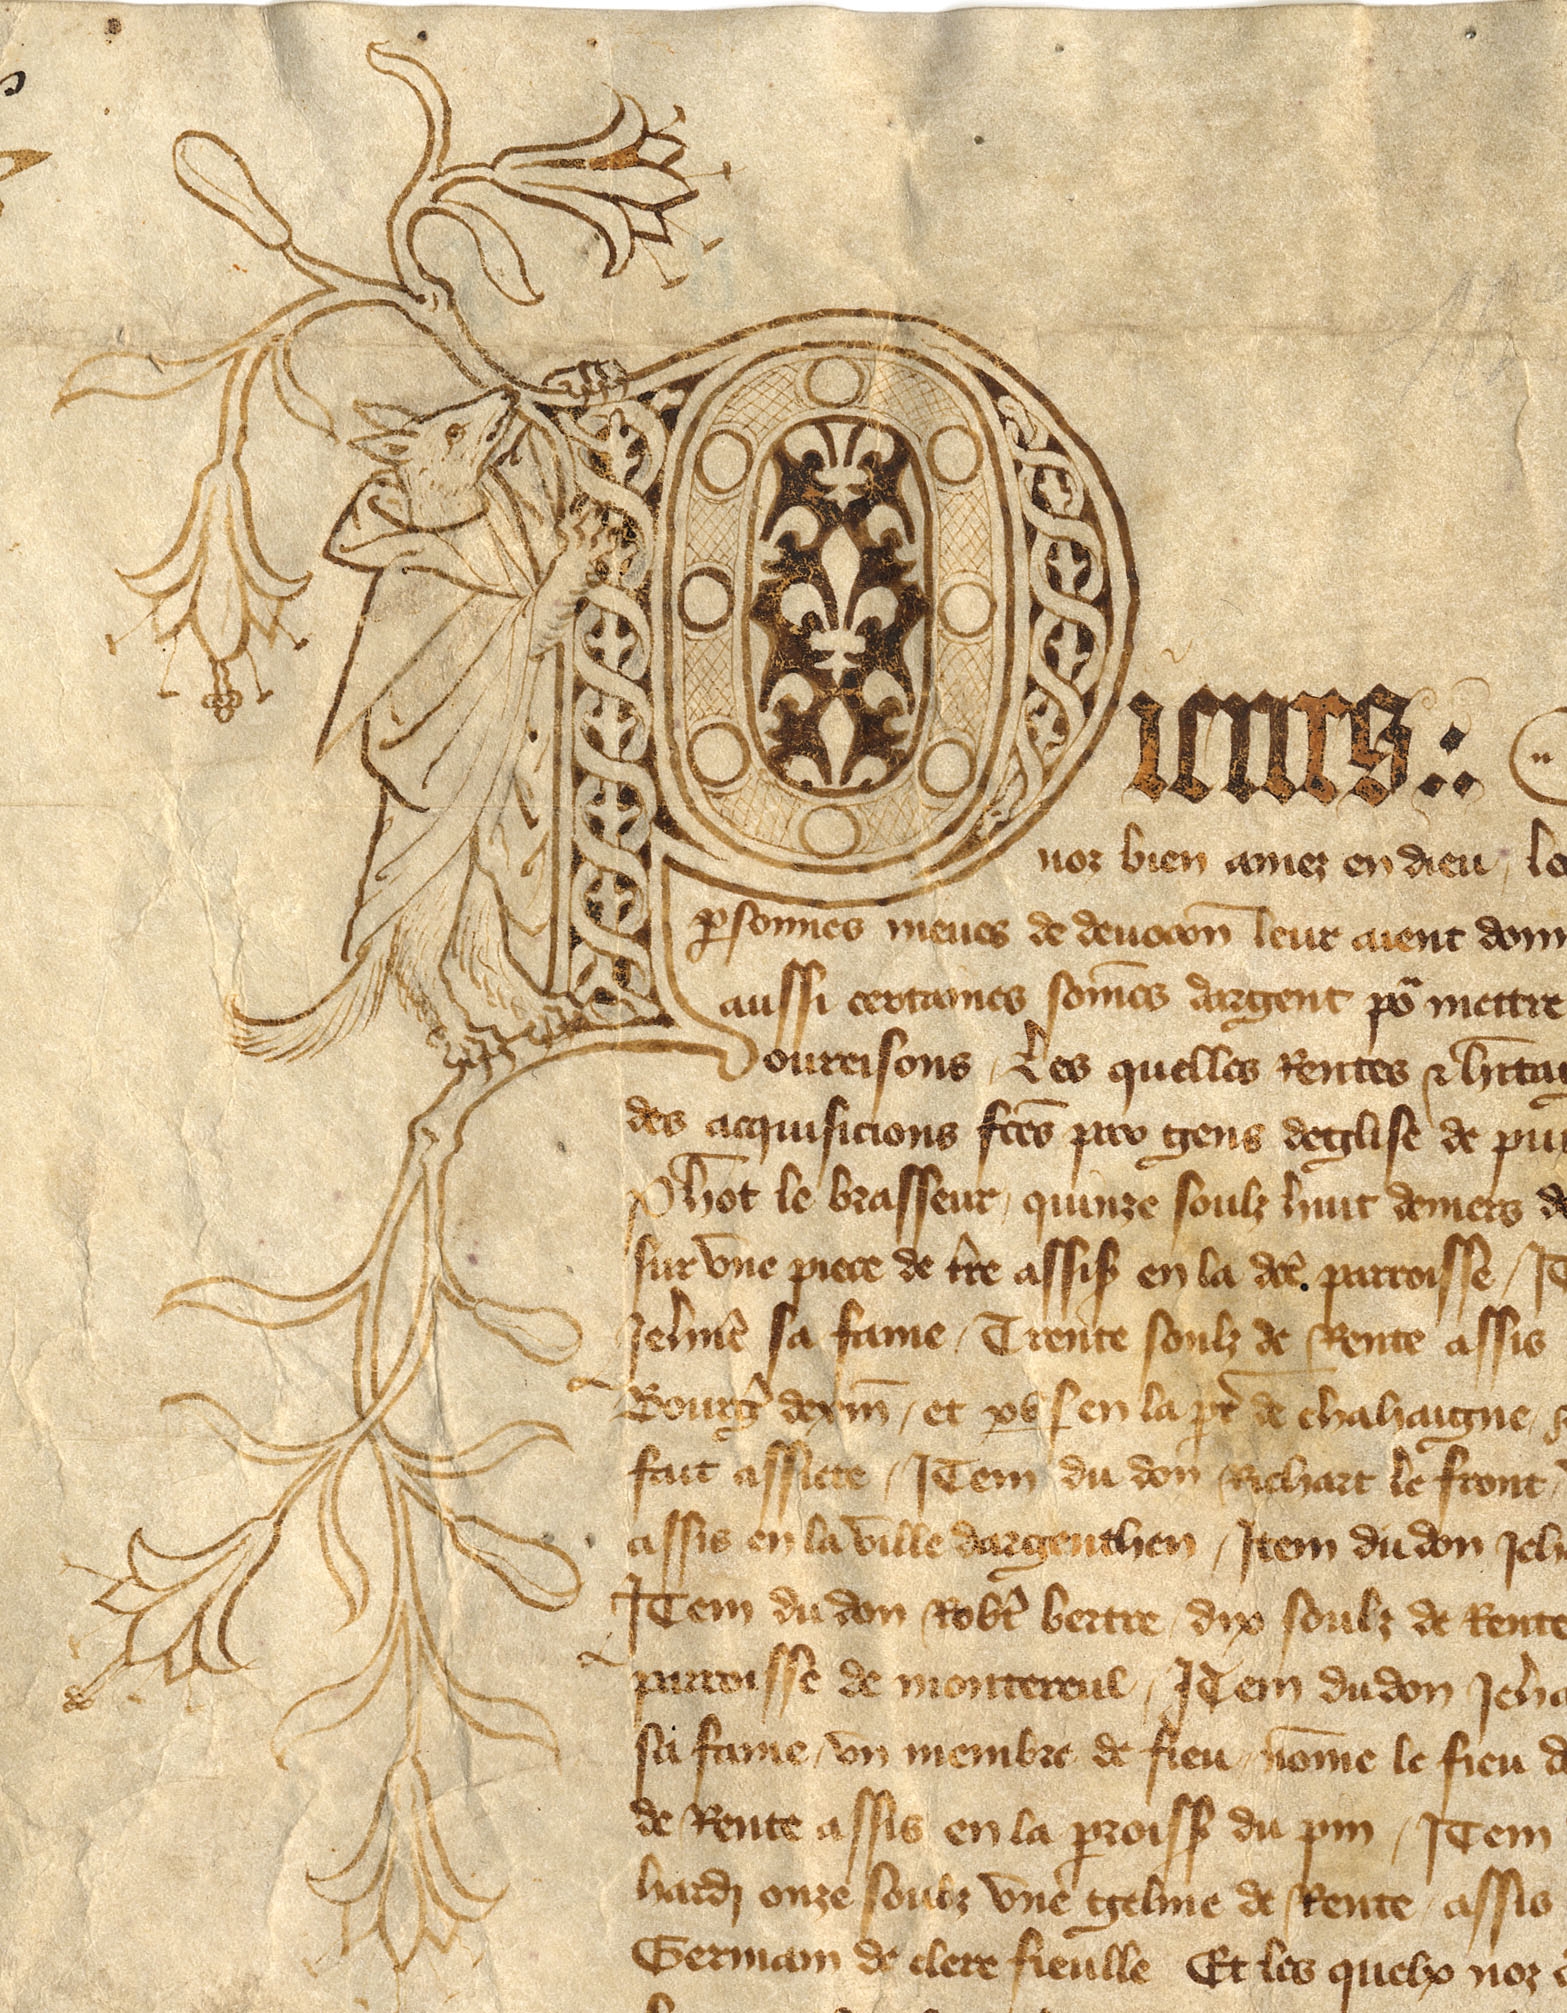 Pierrs :
nor bien amez en dieu / le
p̱sonnes meues de deuocōn leur aient donn
aussi certaines som̄es dargent po᷑ mettre
oureisons / Les quelles Rentes ⁊ h̄ritag
des acquisicions fc̄es par gens deglise de puis
Ph̄ot le brasseur / quinze soulz huit deniers de
sur vne piece de t̄re assiß en la dc̄e. parroisse / It
Jeh̄ne sa fame / Trente soulz de Rente assis
Bourḡ dexm̄ / et xv s en la p̄r de chahaigne
fait assiete / Item du don Richart le front /
assis en la ville dargenthen / Item du don Jeh
Item du don Rob̄t bertre / dix soulz de Rente
parroisse de montereul / Item du don Jeh̄a
sa fame / vn membre de fieu nom̄e le fieu d
de Rente assis en la p̱roisß du pin / Item
hardj onze soulz vne geline de Rente assis
Germain de clere fieulle Et les quelx nor